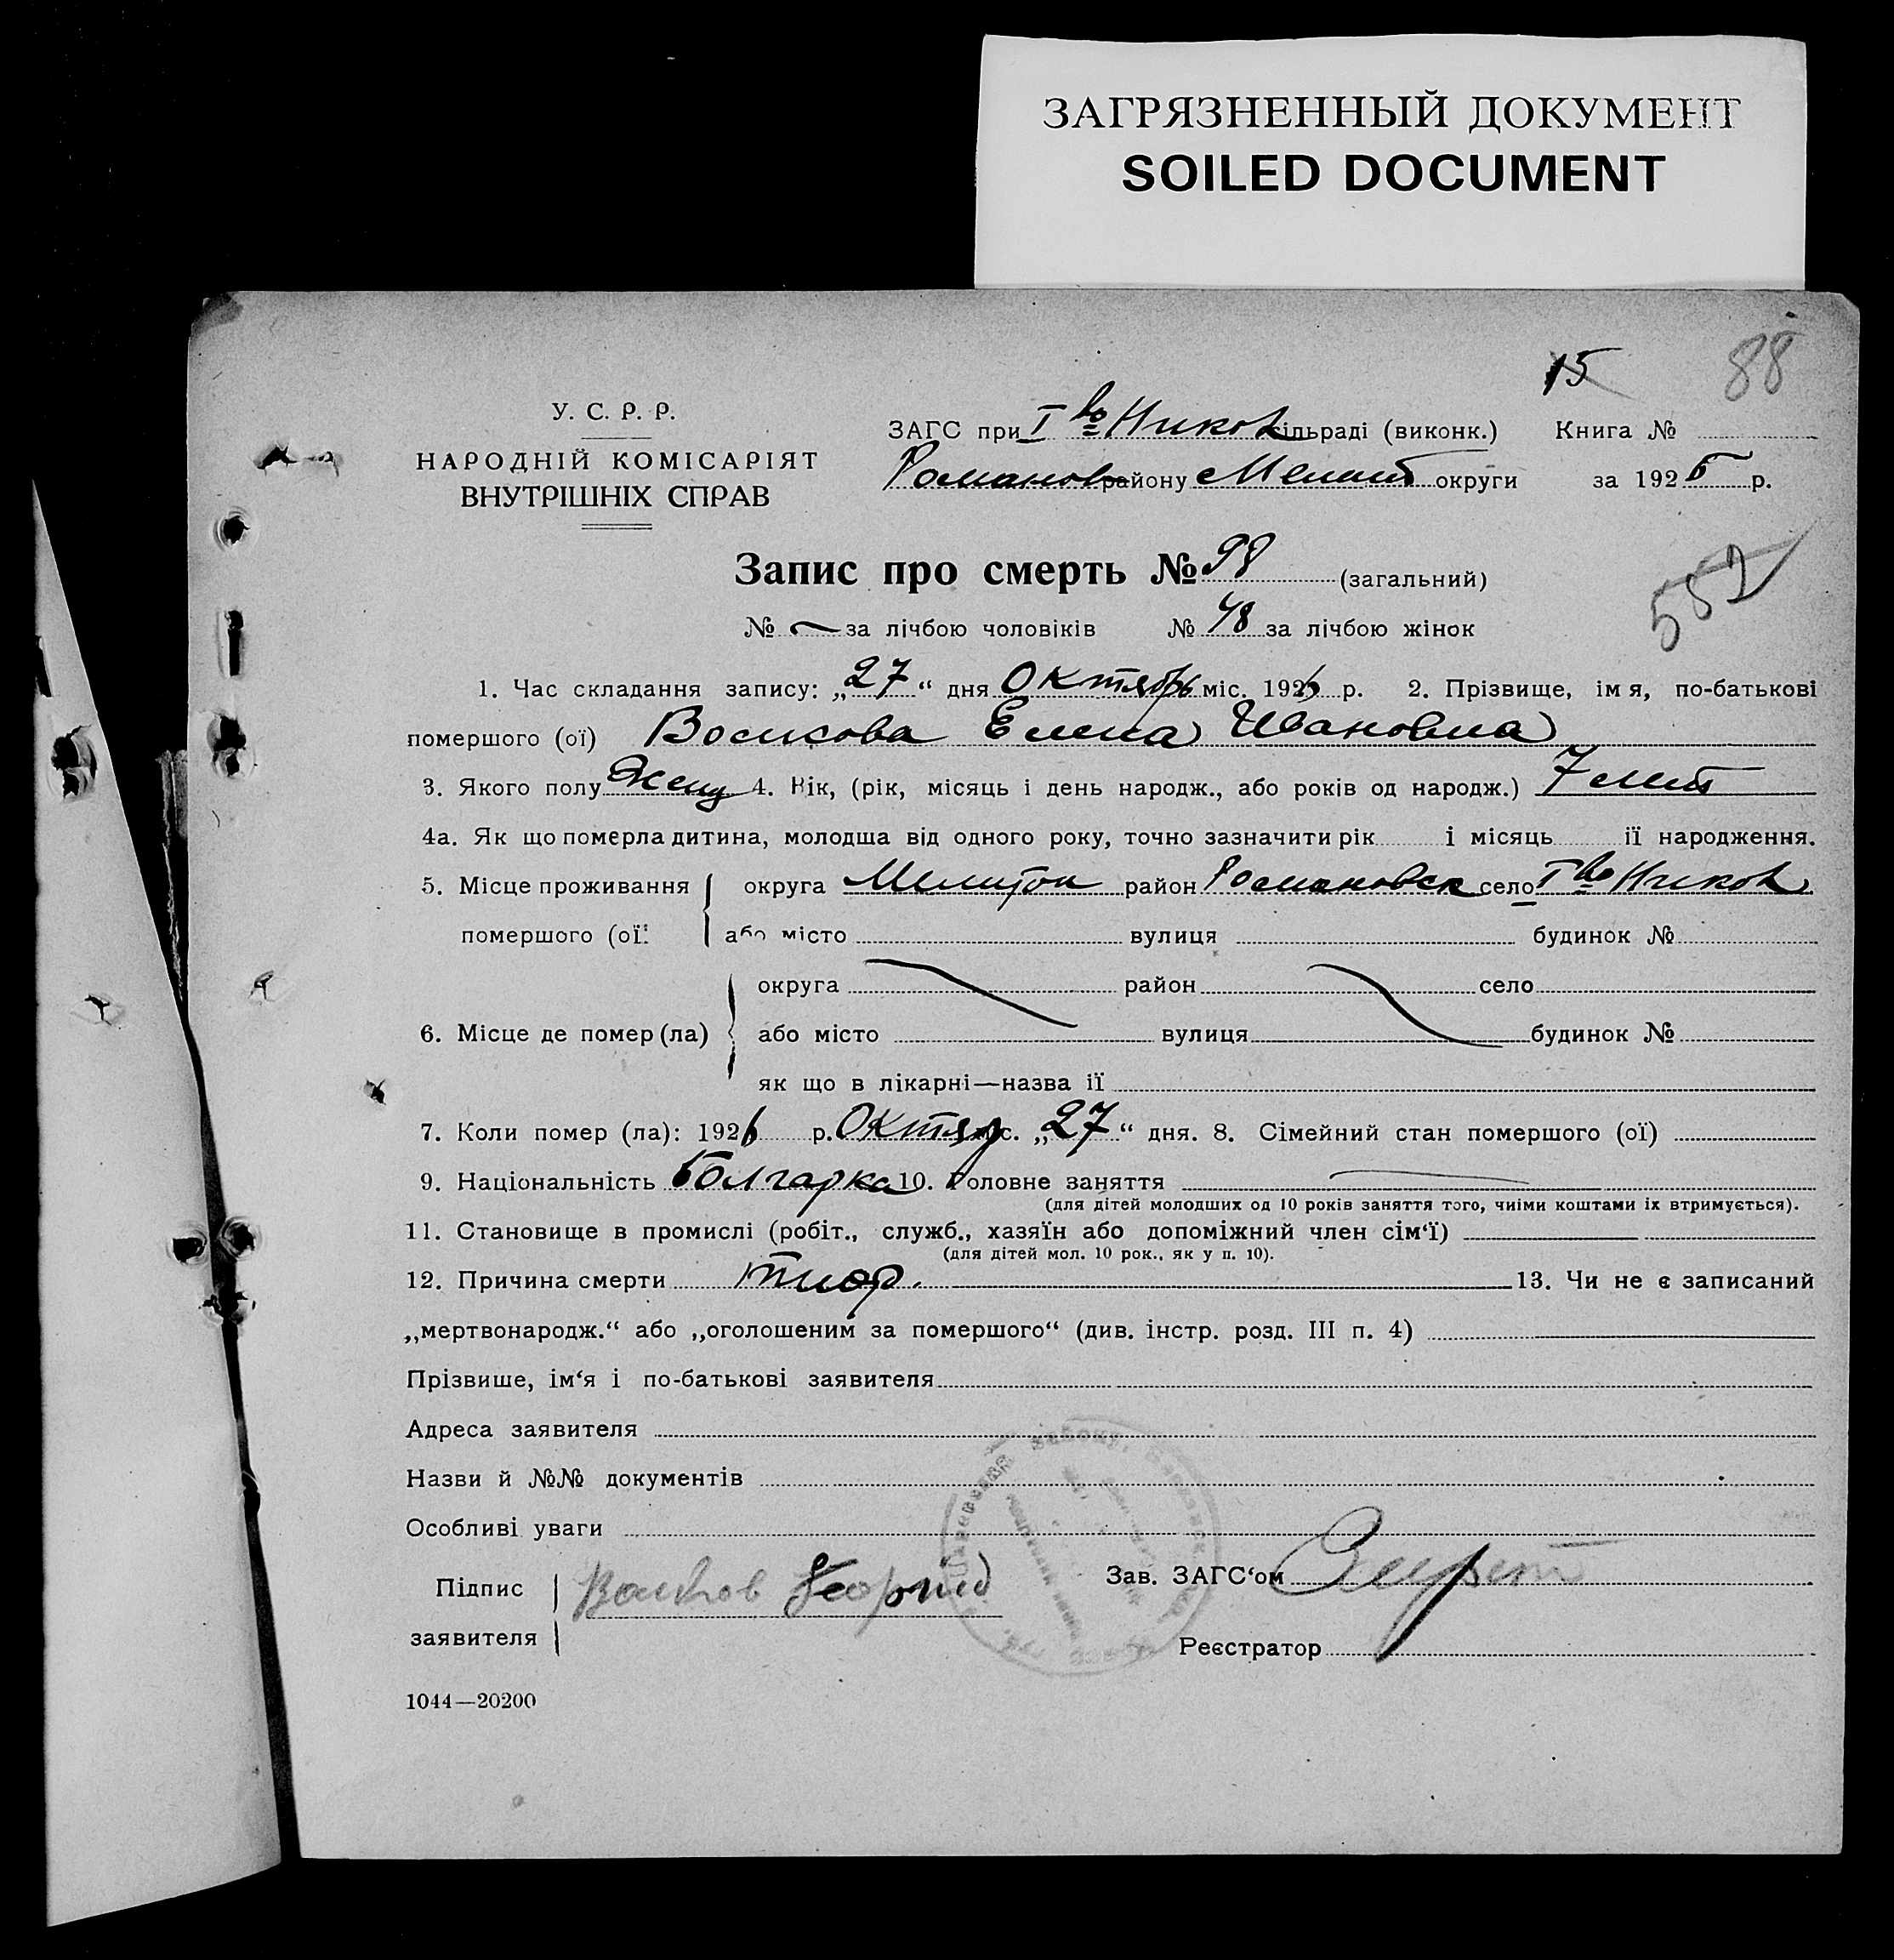 ЗАГРЯЗНЕННЫЙ ДОКУМЕНТ
SOILED DOCUMENT
15 88
У. С. Р. Р.
НАРОДНІЙ КОМІСАРІЯТ
ВНУТРІШНІХ СПРАВ
ЗАГС при I во Никол сільраді (виконк.) Книга №
Романов району Мелит округи за 1926 р.
Запис про смерть № 98 (загальний)
552
№ — за лічбою чоловіків № 48 за лічбою жінок
1. Час складання запису: „27“ дня Октябрь міс. 1926 р. 2. Прізвище, імя, по-батькові
помершого (ої) Волкова Елена Ивановна
3. Якого полу Женщ 4. Вік, (рік, місяць і день народж., або років од народж.) 7 лет
4а. Як що померла дитина, молодша від одного року, точно зазначити рік і місяць її народження.
5. Місце проживання округа Мелитоп район Романовск село I во Никол
помершого (ої) або місто вулиця будинок №
округа район село
6. Місце де помер (ла) або місто вулиця будинок №
як що в лікарні—назва її
7. Коли помер (ла): 1926 р. Октяр міс. „27“ дня. 8. Сімейний стан помершого (ої)
9. Національність Болгарка 10. Головне заняття
(для дітей молодших од 10 років заняття того, чиїми коштами їх втримується).
11. Становище в промислі (робіт., служб., хазяїн або допоміжний член сім‘ї)
(для дітей мол. 10 рок., як у п. 10).
12. Причина смерти 13. Чи не є записаний
„мертвонародж.“ або „оголошеним за помершого“ (див. інстр. розд. III п. 4)
Прізвише, ім‘я і по-батькові заявителя
Адреса заявителя
Назви й №№ документів
Особливі уваги
Підпис заявителя Волков Георгий
Зав. ЗАГС‘ом
Реєстратор
1044—20200